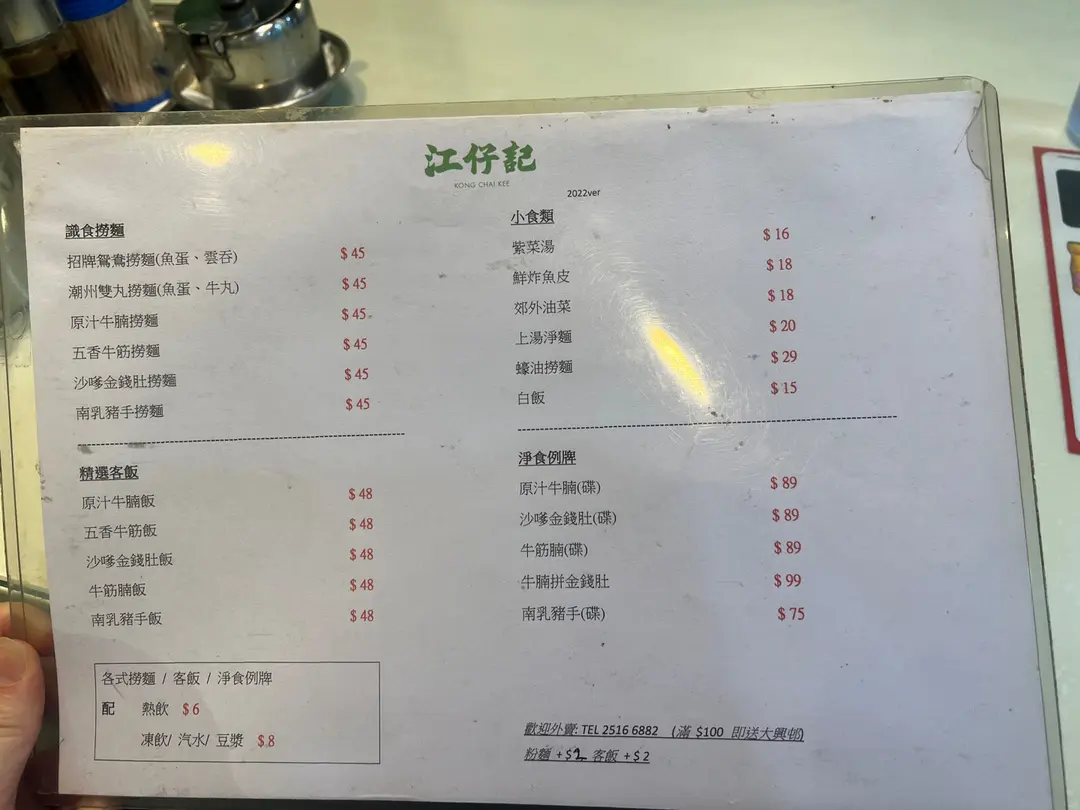 江仔記
KONG CHAI KEE
2022ver
識食撈麵
招牌鴛鴦撈麵(魚蛋、雲吞) $ 45
潮州雙丸撈麵(魚蛋、牛丸) $ 45
原汁牛腩撈麵 $ 45
五香牛筋撈麵 $ 45
沙嗲金錢肚撈麵 $ 45
南乳豬手撈麵 $ 45
精選客飯
原汁牛腩飯 $ 48
五香牛筋飯 $ 48
沙嗲金錢肚飯 $ 48
牛筋腩飯 $ 48
南乳豬手飯 $ 48
各式撈麵 / 客飯 / 淨食例牌
配 熱飲 $ 6
凍飲/ 汽水/ 豆漿 $ 8
小食類
紫菜湯 $ 16
鮮炸魚皮 $ 18
郊外油菜 $ 18
上湯淨麵 $ 20
蠔油撈麵 $ 29
白飯 $ 15
淨食例牌
原汁牛腩(碟) $ 89
沙嗲金錢肚(碟) $ 89
牛筋腩(碟) $ 89
牛腩拼金錢肚 $ 99
南乳豬手(碟) $ 75
歡迎外賣: TEL 2516 6882 (滿 $100 即送大興邨)
粉麵 + $2 客飯 + $ 2